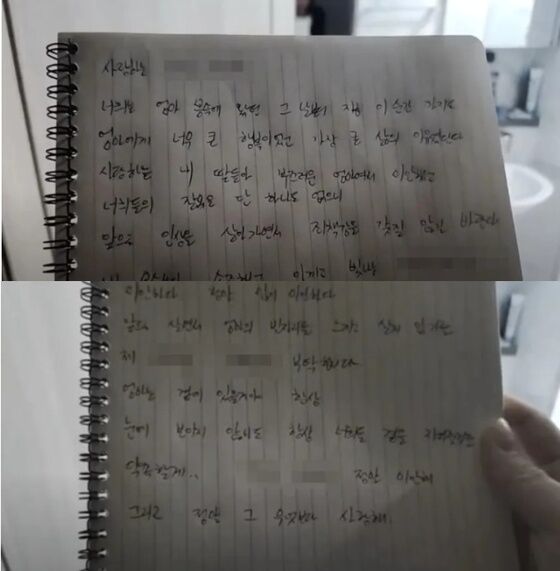 사랑하는
너희는 엄마 뱃속에 왔던 그 날부터 지금 이 순간 까지도
엄마에게 너무 큰 행복이었고 가장 큰 삶의 이유였단다
사랑하는 내 딸들아 부끄러운 엄마여서 미안하고
너희들의 잘못은 단 하나도 없으니
앞으로 인생을 살아가면서 죄책감을 갖질 않길 바란다
미안하다 정말 많이 미안하다
앞으로 살면서 엄마의 빈자리를 느끼고 살지 않기를
부탁한다
엄마는 곁에 있을거야 항상
눈에 보이지 않아도 항상 너희들 곁을
약속할게..
정말 미안해
그리고 정말 그 무엇보다 사랑해.